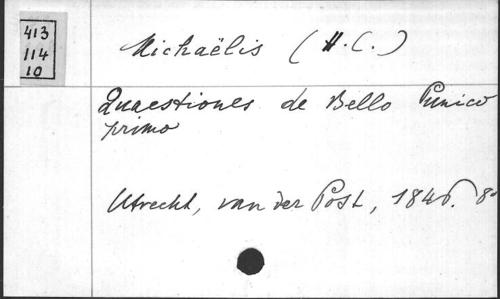 413
114
10
Michaëlis (H. C.)
Quaestiones de Bello Punico
primo
Utrecht, van der Post, 1846. 8°